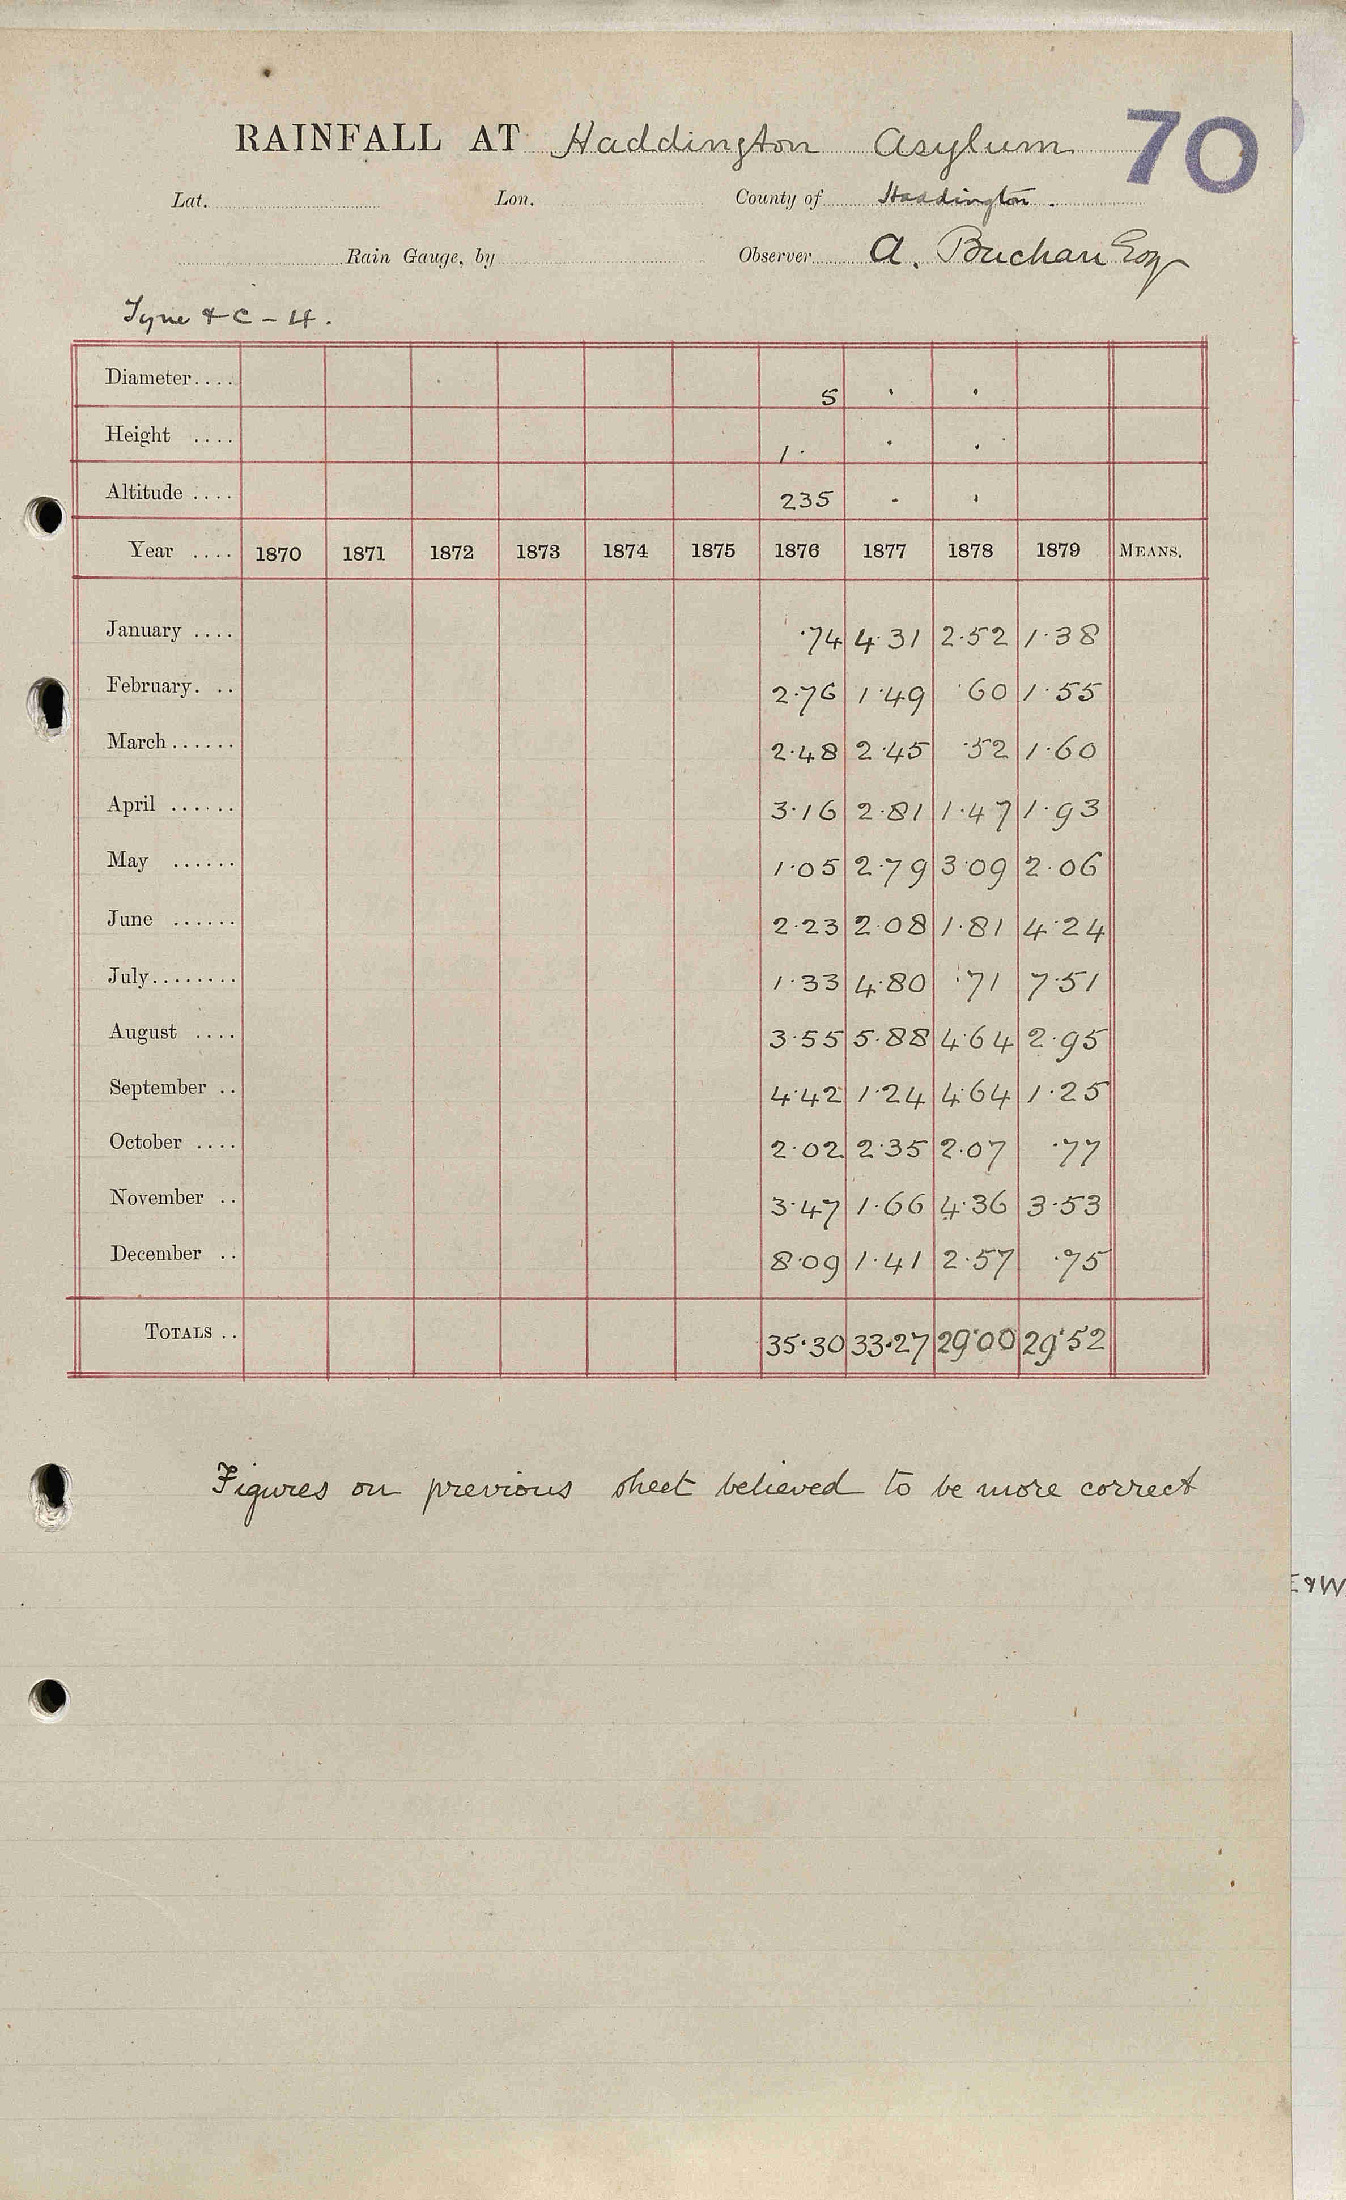 RAINFALL AT Haddington Asylum 70
Lat. Lon. County of Haddington.
Rain Gauge, by Observer A. Buchan Esq
Tyne & C - 4.
Diameter.... 5 · ·
Height .... 1· · ·
Altitude .... 235 - ·
Year .... 1870 1871 1872 1873 1874 1875 1876 1877 1878 1879 MEANS.
January .... ·74 4·31 2·52 1·38
February. .. 2·76 1·49 ·60 1·55
March...... 2·48 2·45 ·52 1·60
April ...... 3·16 2·81 1·47 1·93
May ...... 1·05 2·79 3·09 2·06
June ...... 2·23 2·08 1·81 4·24
July........ 1·33 4·80 ·71 7·51
August .... 3·55 5·88 4·64 2·95
September .. 4·42 1·24 4·64 1·25
October .... 2·02 2·35 2·07 ·77
November .. 3·47 1·66 4·36 3·53
December .. 8·09 1·41 2·57 ·75
TOTALS .. 35·30 33·27 29·00 29·52
Figures on previous sheet believed to be more correct
E&W